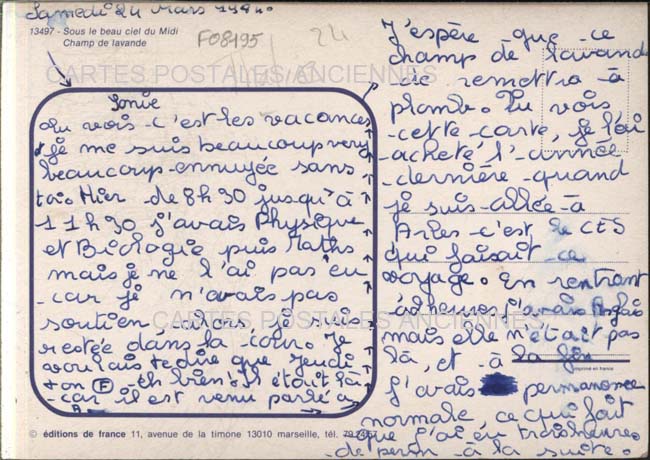 Samedi 24 Mars
13497 - Sous le beau ciel du Midi
Champ de lavande
F08195
24
CARTES POSTALES ANCIENNES
Sonie
tu vois c'est les vacances
je me suis beaucoup very
beaucoup ennuyée sans
toi. Hier de 8h30 jusqu'à
11h30 j'avais Physique
et Biologie puis Maths
mais je ne l'ai pas eu
car je n'avais pas
soutien alors, je suis
restée dans la cour. Je
voulais te dire que Jeudi
ton F eh bien! Il était là
car il est venu parlé a
J'espère que ce
champ de lavande
de remettra à
plomb. Tu vois
cette carte, je l'ai
acheté l'année
dernière quand
je suis allée à
Arles c'est le CES
qui faisait ce
voyage. En rentrant
j'avais Anglais
mais elle n'était pas
là, et à la fin
J'avais permanence
normale, ce qui fait
que j'ai eu trois heures
de perm à la suite.
CARTES POSTALES ANCIENNES
imprimé en france
© éditions de france 11, avenue de la timone 13010 marseille, tél.